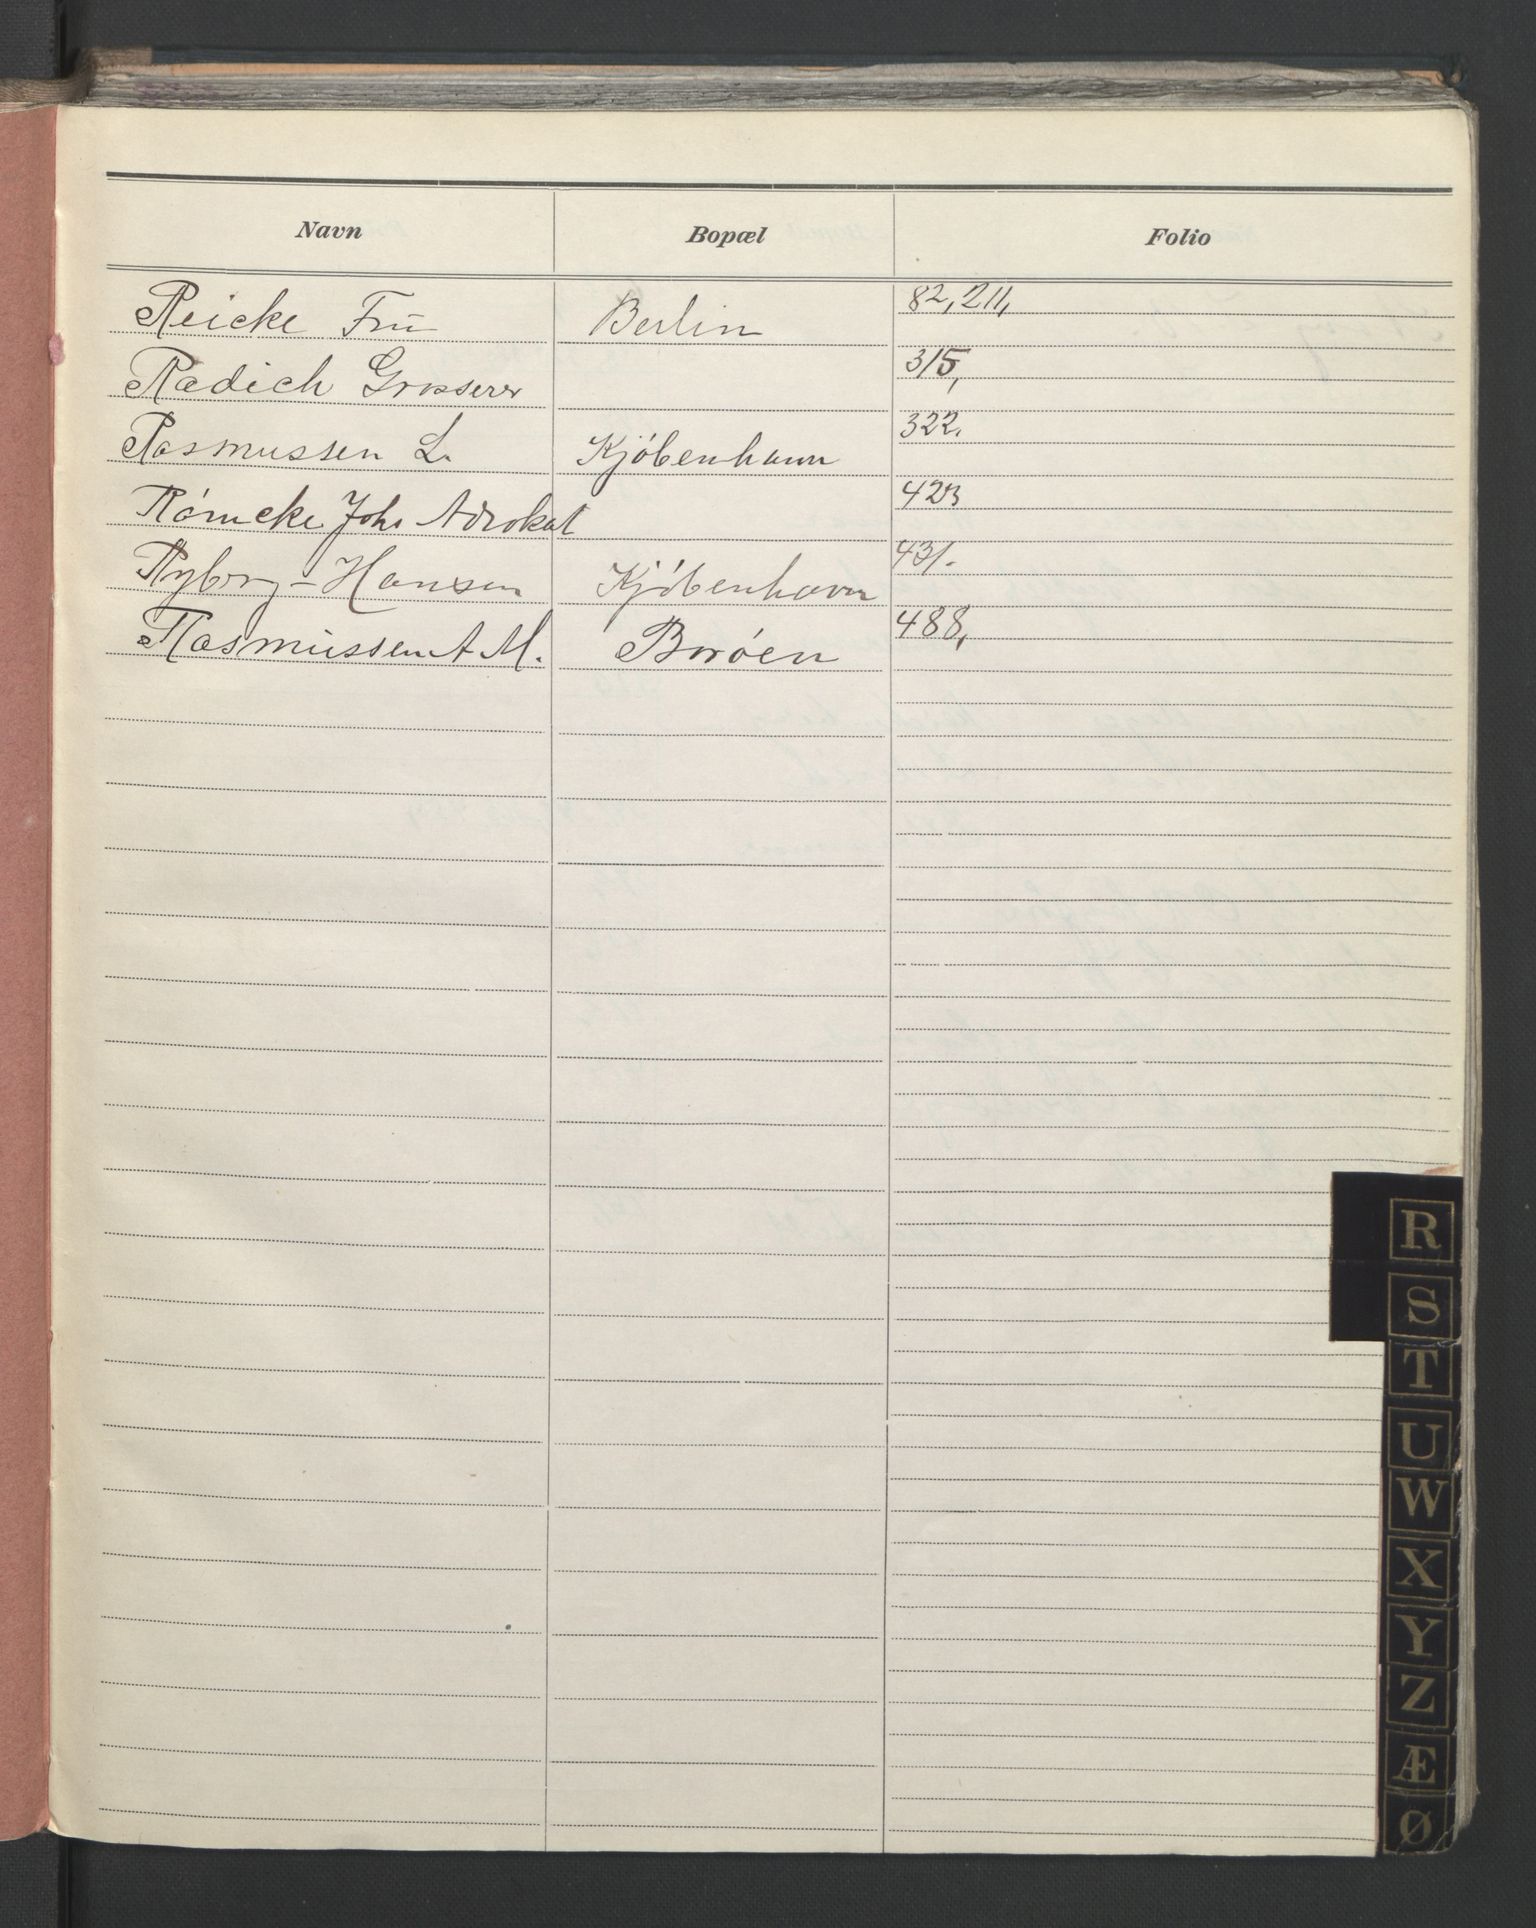 Navn Bopæl Folio
Reicke Frü Berlin 82, 211,
Radich Grosserer 315,
Rasmussen L. Kjöbenhavn 322.
Römcke Johs Advokat 423
Ryborg-Hansen Kjöbenhavn 431.
Rasmüssen A M. Boröen 488,
R
S
T
U
W
X
Y
Z
Æ
Ø